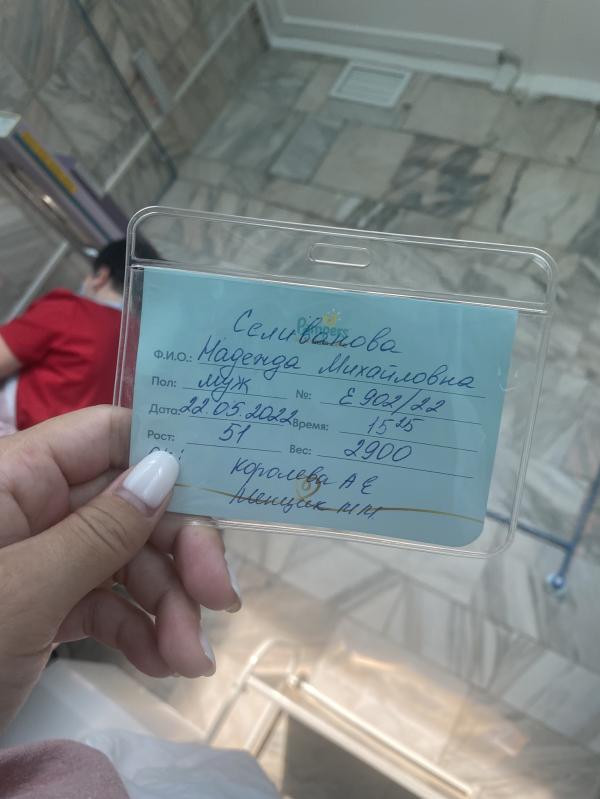 Pampers
Селиванова
Ф.И.О.: Надежда Михайловна
Пол: муж №: Е 902/22
Дата: 22.05.2022 Время: 15 25
Рост: 51 Вес: 2900
Королева А Е
Менщик М М.